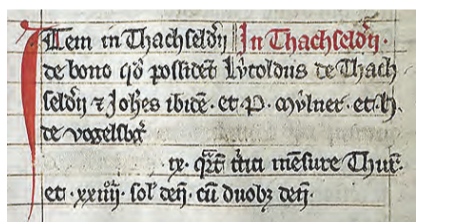 Item in Thachseldṙ In Thachseldṙ.
de bono qď possidet Lv̇toldus de Thach
seldṙ ⁊ Joh̄es ibidē. et P. Mv̇lner. et h.
de vogelsbᷓ
ix. qᷓrt̄ tritici mēsure Thuᷓ.
et. xxiiij. sol̄ deñ. cū duobꝫ deñ.